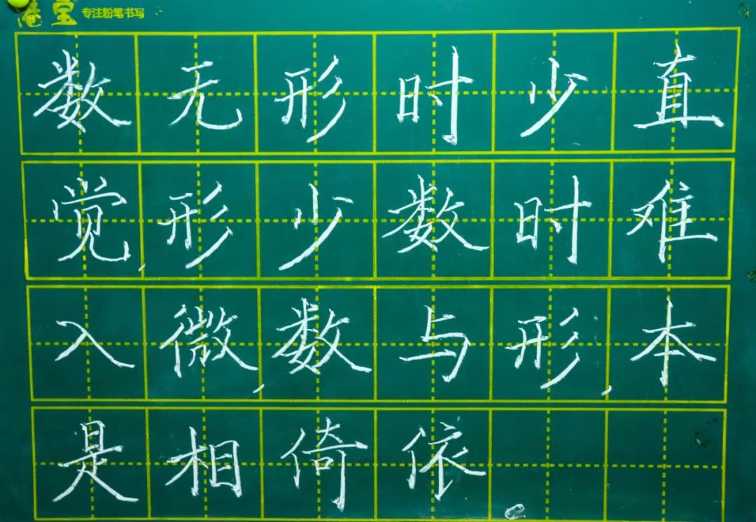 庵堂 专注粉笔书写
数无形时少直
觉,形少数时难
入微,数与形,本
是相倚依。